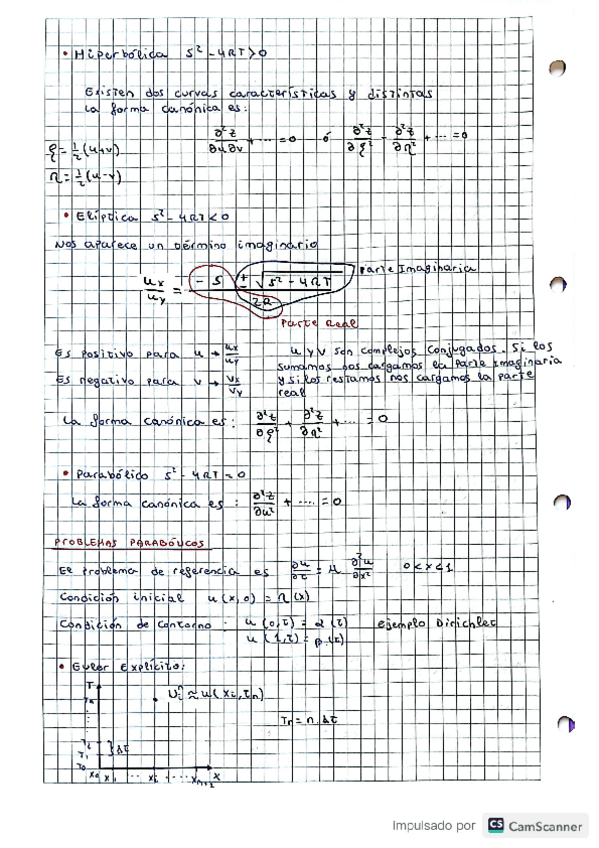 • Hiperbólica S² - 4RT > 0
Existen dos curvas características y distintas
La forma canónica es:
∂²z/∂u∂v + ... = 0 ó ∂²z/∂ξ² - ∂²z/∂η² + ... = 0
ξ = 1/2 (u+v)
η = 1/2 (u-v)
• Elíptica S² - 4RT < 0
Nos aparece un término imaginario
ux/uy = (-S ± √(S² - 4RT))/2R Parte Imaginaria
Parte Real
Es positivo para u → ux/uy
Es negativo para v → vx/vy
u y v son complejos conjugados. Si los
sumamos nos cargamos la parte imaginaria
y si los restamos nos cargamos la parte
real
La forma canónica es: ∂²z/∂ξ² + ∂²z/∂η² + ... = 0
• Parabólico S² - 4RT = 0
La forma canónica es: ∂²z/∂u² + .... = 0
PROBLEMAS PARABÓLICOS
El problema de referencia es ∂u/∂t = μ ∂²u/∂x² 0 < x < 1
Condición inicial u(x,0) = η(x)
Condición de contorno: u(0,t) = α(t) ejemplo Dirichlet
u(1,t) = β(t)
• Euler Explícito:
T
Tn
Uᵢⁿ ≈ u(xᵢ, tn)
Tn = n·Δt
T2
T1 } Δt
T0
x0 x1 ... xi ... xm+1 x
Impulsado por CS CamScanner